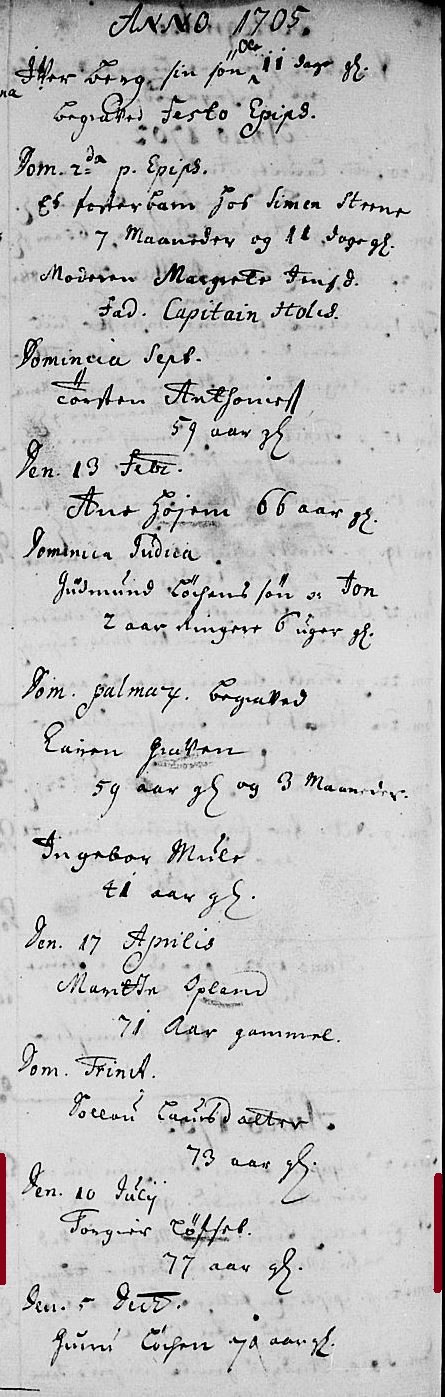 ANNO 1705.
Iffver berg sin søn Ole 11 dage gl.
begraved Festo Epiph.
Dom. 2da p. Epiph.
Et fosterbarn hos Simen Steene
7 Maaneder og 11 dage gl.
Moderen Magrete Jensd.
Fad. Capitain Holst.
Dominica Sept.
Torsten Anthonies
59 aar gl
Den. 13 Febr.
Ane Højem 66 aar gl.
Dominica Judica
Gudmund Løchens søn Jon
2 aar Ringere 6 uger gl.
Dom. palmar. begraved
Karen Graven
59 aar gl og 3 Maaneder.
Ingebor Mule
41 aar gl.
Den. 17 Aprilis
Maritte Opland
71 Aar gammel.
Dom. Trinit.
Larsdatter
73 aar gl.
Den. 10 Julij
Torgier
77 aar gl.
Den. 5 Dec.
Guni Løchen aar gl.